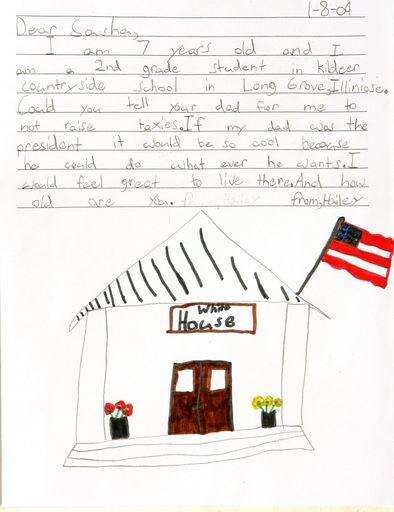 1-8-04
Dear Sasha,
I am 7 years old and I
am a 2nd grade student in kildeer
countryside school in Long Grove,Illiniose.
Could you tell your dad for me to
not raise taxies.If my dad was the
president it would be so cool because
he could do what ever he wants.I
would feel great to live there.And how
old are you. from,Hailey
White
House